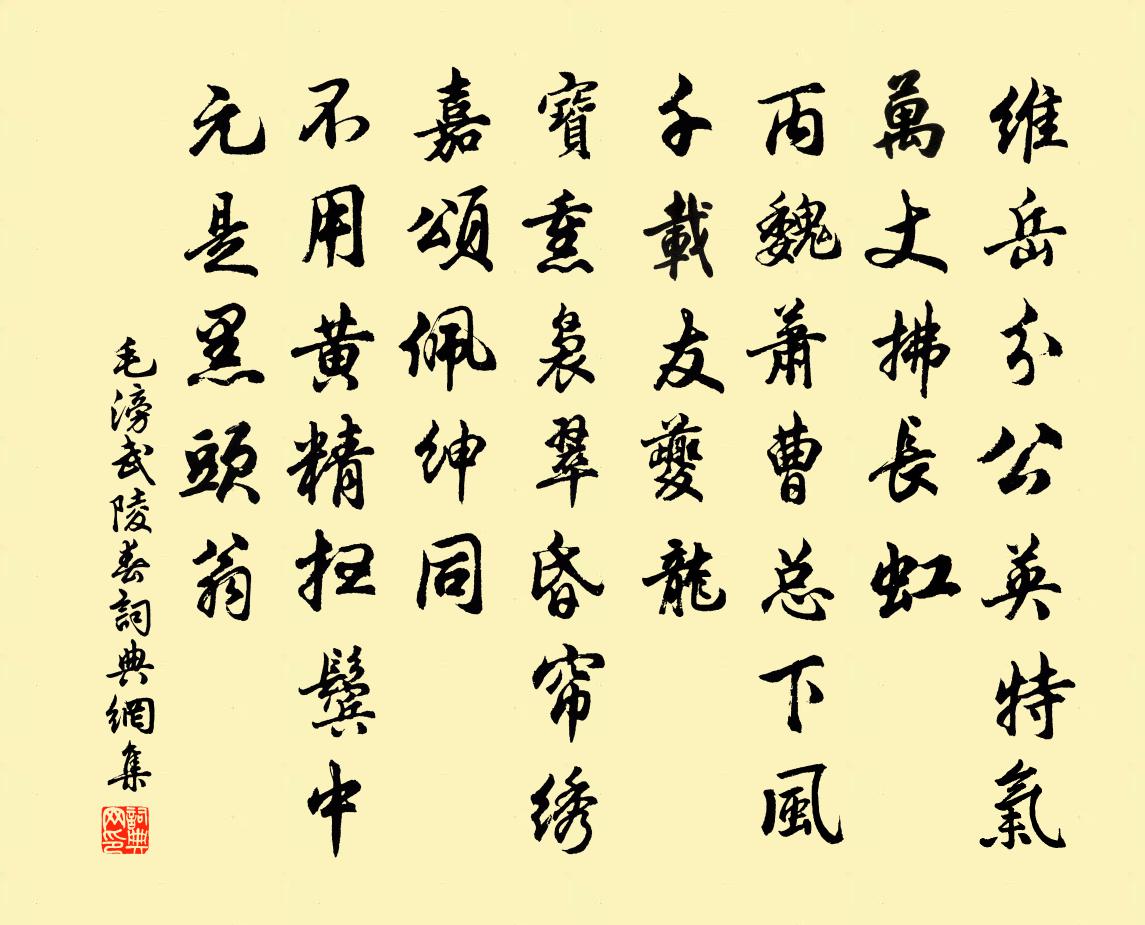 維岳分公英特氣
萬丈拂長虹
丙魏蕭曹总下風
千載友夔龍
寶熏裊翠昏帘绣
嘉頌佩紳同
不用黄精扫鬓中
元是黑頭翁
毛滂武陵春詞典網集
詞典网印